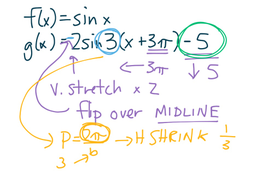 f(x) = sin x
g(x) = -2sin 3(x + 3π) - 5
← 3π ↓ 5
v. stretch x 2
flip over MIDLINE
P = 2π → H SHRINK 1/3
3 → b